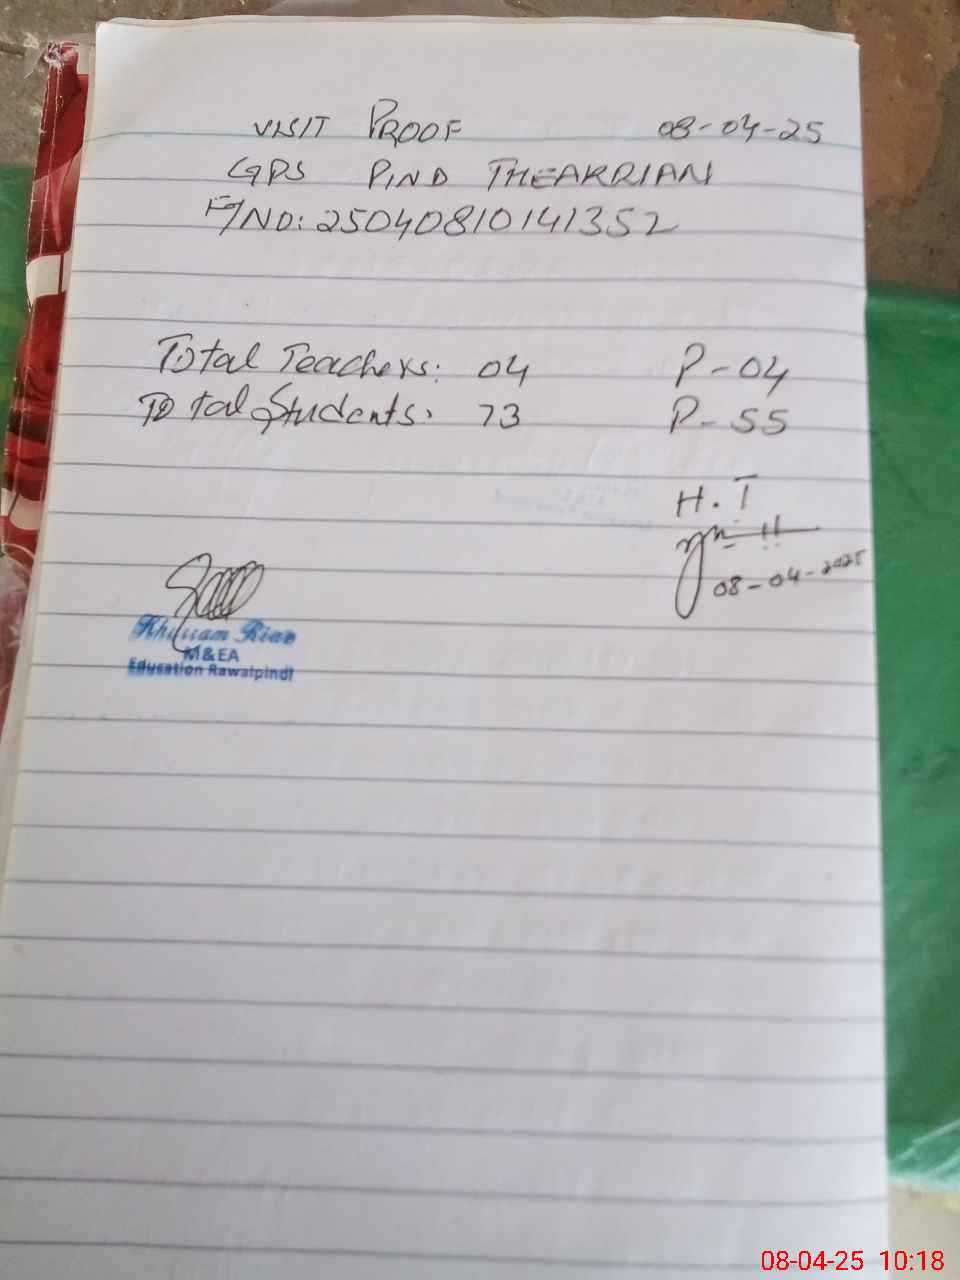 VISIT PROOF 08-04-25
GPS PIND THEAKRIAN
F/NO: 25040810141352
Total Teachers: 04 P-04
Total Students: 73 P-55
H.T
08-04-2025
Khurram Riaz
M&EA
Education Rawalpindi
08-04-25 10:18